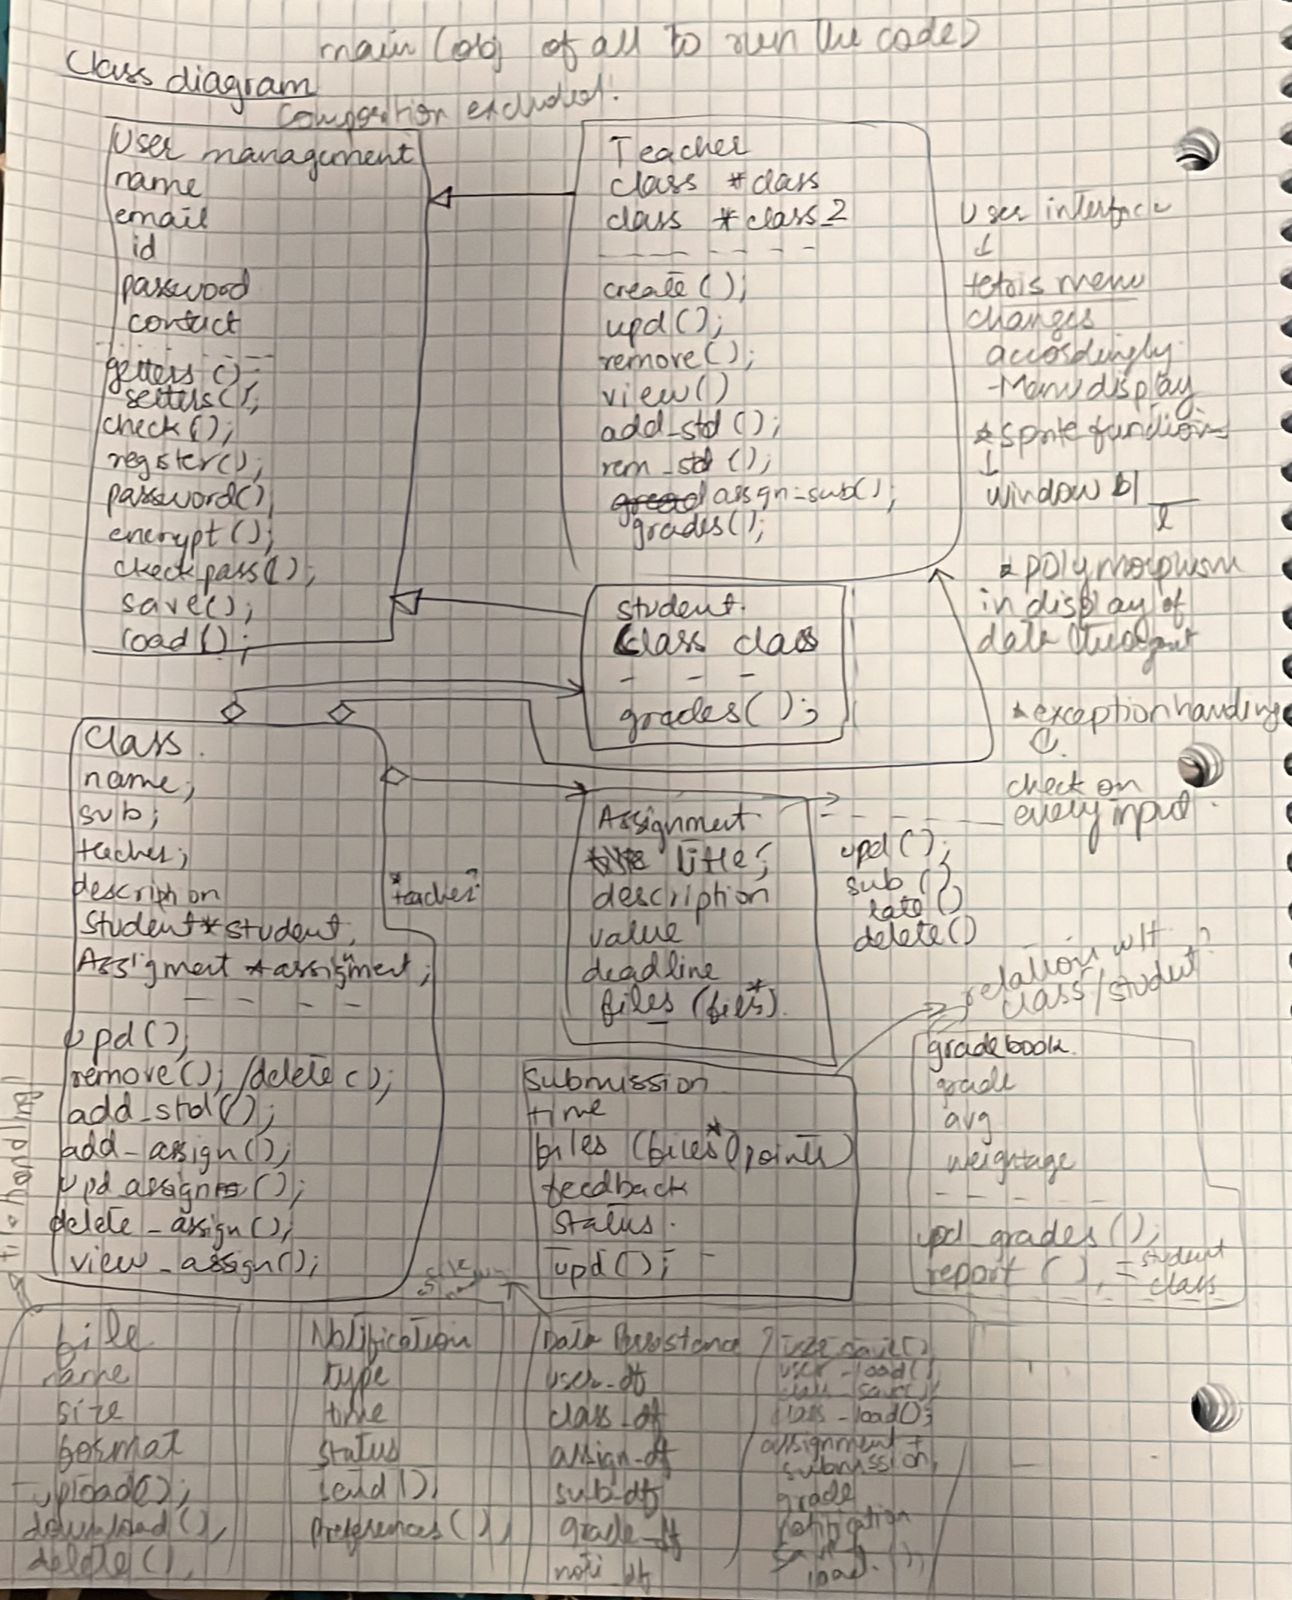 main (obj of all to run the code)
Class diagram
Composition excluded!
User management
name
email
id
password
contact
getters();
setters();
check();
register();
password();
encrypt();
checkpass();
save();
load();
Teacher
class *class
class *class2
create();
upd();
remove();
view()
add_std();
rem_std();
assign_sub();
grades();
User interface
↓
tetris menu
changes
accordingly
-Menu display
* sprite function
↓
window b/
* polymorphism
in display of
data throughout
* exception handling
check on
every input.
student.
Class class
grades();
Class.
name;
sub;
teacher;
description
Student*student,
Assigment *assigment;
upd();
remove(); /delete();
add_std();
add_assign();
upd_assign();
delete_assign();
view_assign();
*teacher?
Assignment
title;
description
value
deadline
files (files*).
upd();
sub()
late()
delete()
relation wH
class/student?
Submission
time
files (files*) points
feedback
status.
upd();
gradebook.
grade
avg
weightage
upd_grades();
report(), = student
class
file
name
size
format
upload();
download(),
delete(),
Notification
type
time
status
send(),
preferences(),
Data Persistence
user_df
class_df
assign_df
sub_df
grade_df
noti_df
user_save()
user_load();
class_save();
class_load();
assignment +
submission,
grade
notification
save(),
load.